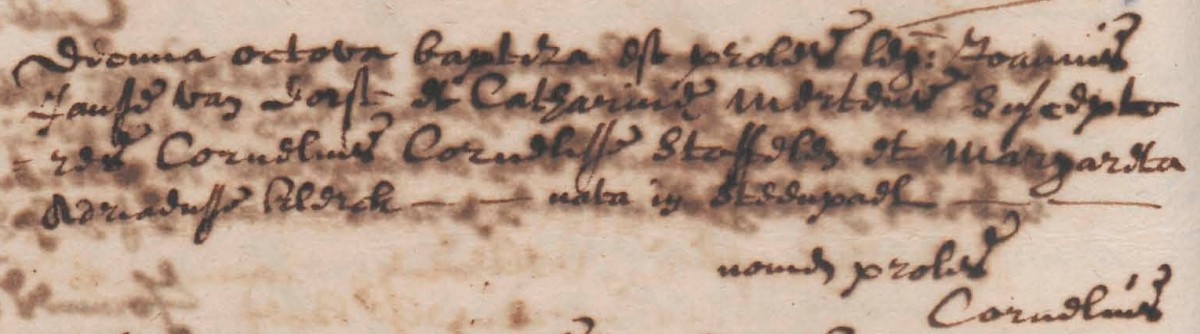 Decima octova baptiza est proles leg: Joannis
Janse van Dorst et Catharinę Mertens Suscepto
= res Cornelius Cornelisse Stoffelen et Margareta
Adriaensse Clerck — — nata in Steenpael — —
nomen proles
Cornelius